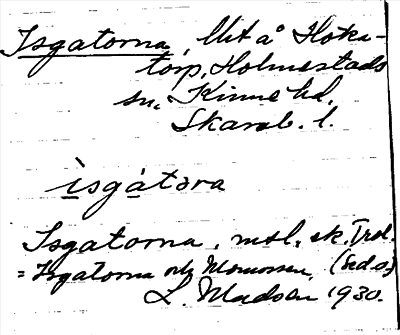 Isgatorna, Utä å Håka-
torp, Holmestads
sn, Kinne hd,
Skarab. l.
ìsgátəra
Isgatorna, msl, sk. Trol.
= Isgatorna och Mumossen, (Sed. a)
L. Madsén 1930.